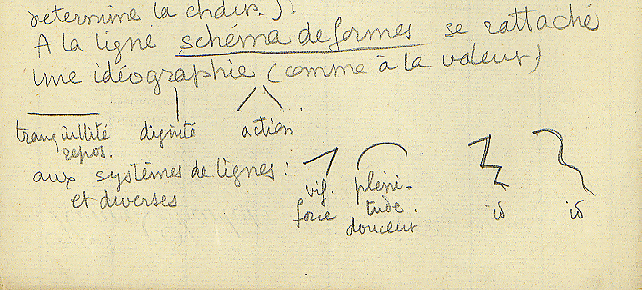 détermine la chair.).
A la ligne schéma de formes se rattache
une idéographie (comme à la valeur)
tranquillité dignité action
repos.
aux systèmes de lignes :
et diverses
vif. pléni-
force tude. id id
douceur